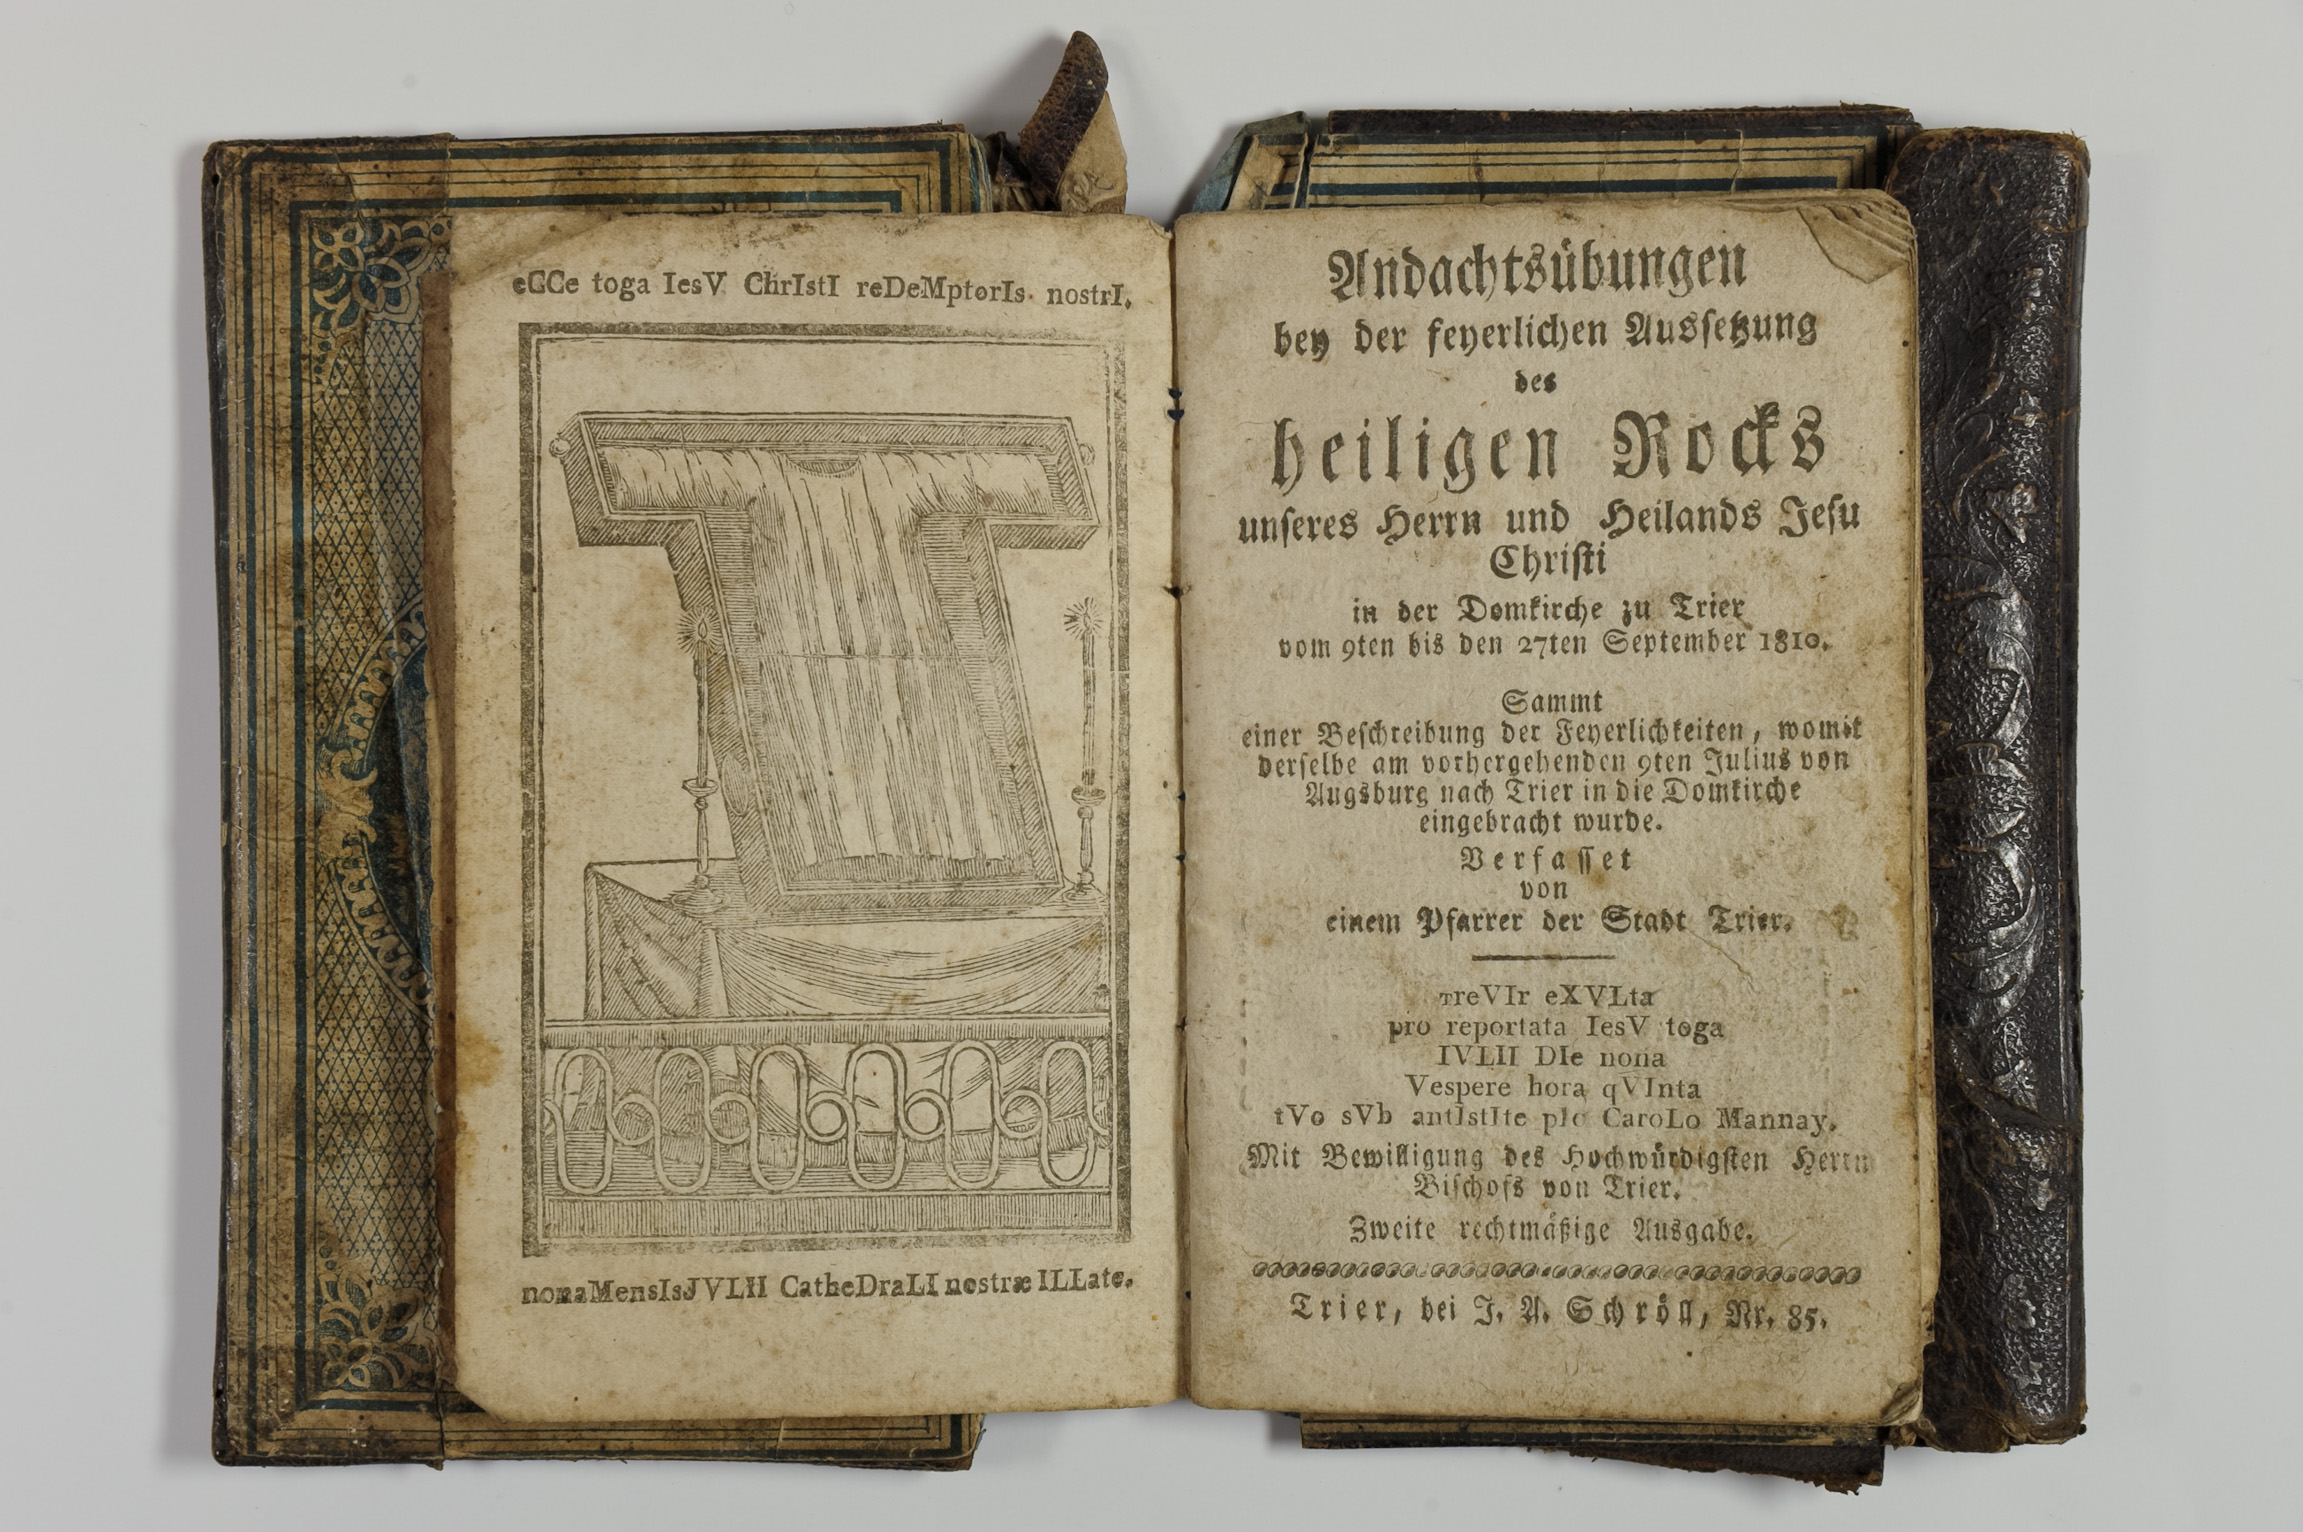 eCCe toga IesV ChrIstI reDeMptorIs nostrI.
nonaMensIsJVLII CatheDraLI nostræ ILLate.
Andachtsübungen
bey der feyerlichen Ausſetzung
des
heiligen Rocks
unſeres Herrn und Heilands Jeſu
Chriſti
in der Domkirche zu Trier
vom 9ten bis den 27ten September 1810.
Sammt
einer Beſchreibung der Feyerlichkeiten, womit
derſelbe am vorhergehenden 9ten Julius von
Augsburg nach Trier in die Domkirche
eingebracht wurde.
Verfaſſet
von
einem Pfarrer der Stadt Trier.
TreVIr eXVLta
pro reportata IesV toga
IVLII DIe nona
Vespere hora qVInta
tVo sVb antIstIte pIo CaroLo Mannay.
Mit Bewilligung des Hochwürdigſten Herrn
Biſchofs von Trier.
Zweite rechtmäßige Ausgabe.
Trier, bei J. A. Schröll, Nr. 85.